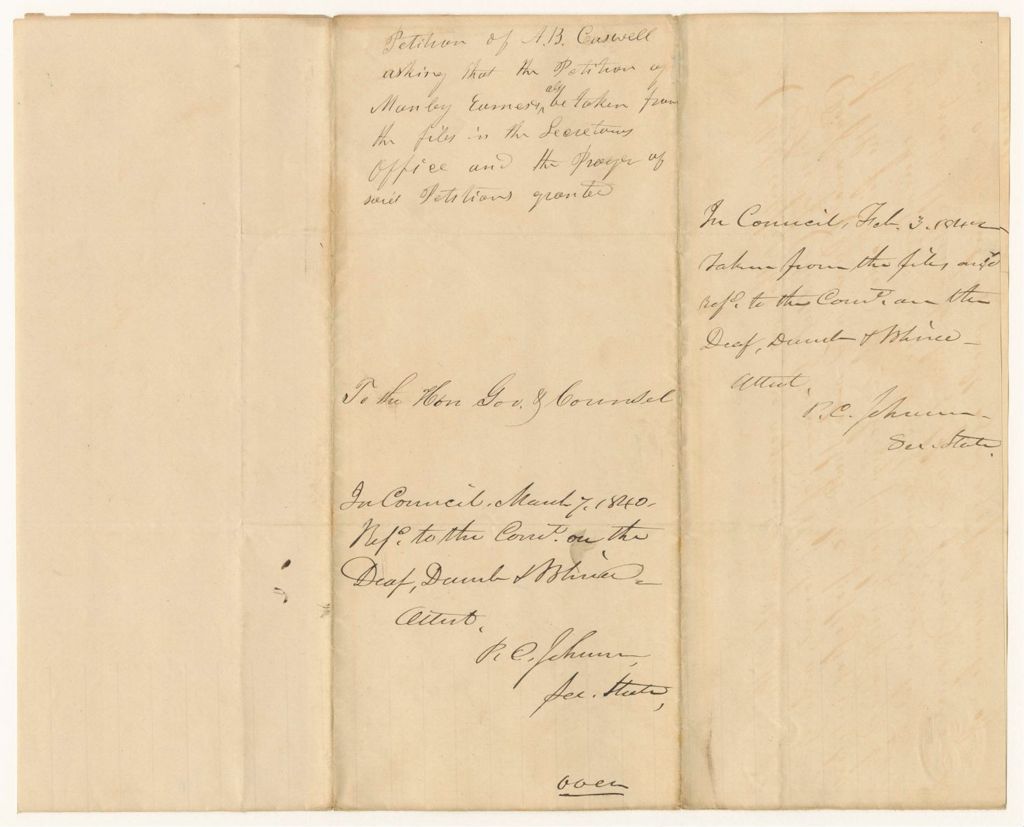 Petition of A.B. Caswell
asking that the Petition of
Manley Eames, also be taken from
the files in the Secretarys
Office and the Prayer of
said Petitions granted
To the Hon Gov. & Counsel
In Council, March 7. 1840.
Refd. to the Comt. on the
Deaf, Dumb & Blind—
Attest,
P. C. Johnson,
Sec. State,
over
In Council, Feb. 3. 184
Taken from the files and
refd. to the Comt. on the
Deaf, Dumb & Blind—
Attest,
P. C. Johnson—
Sec. State,